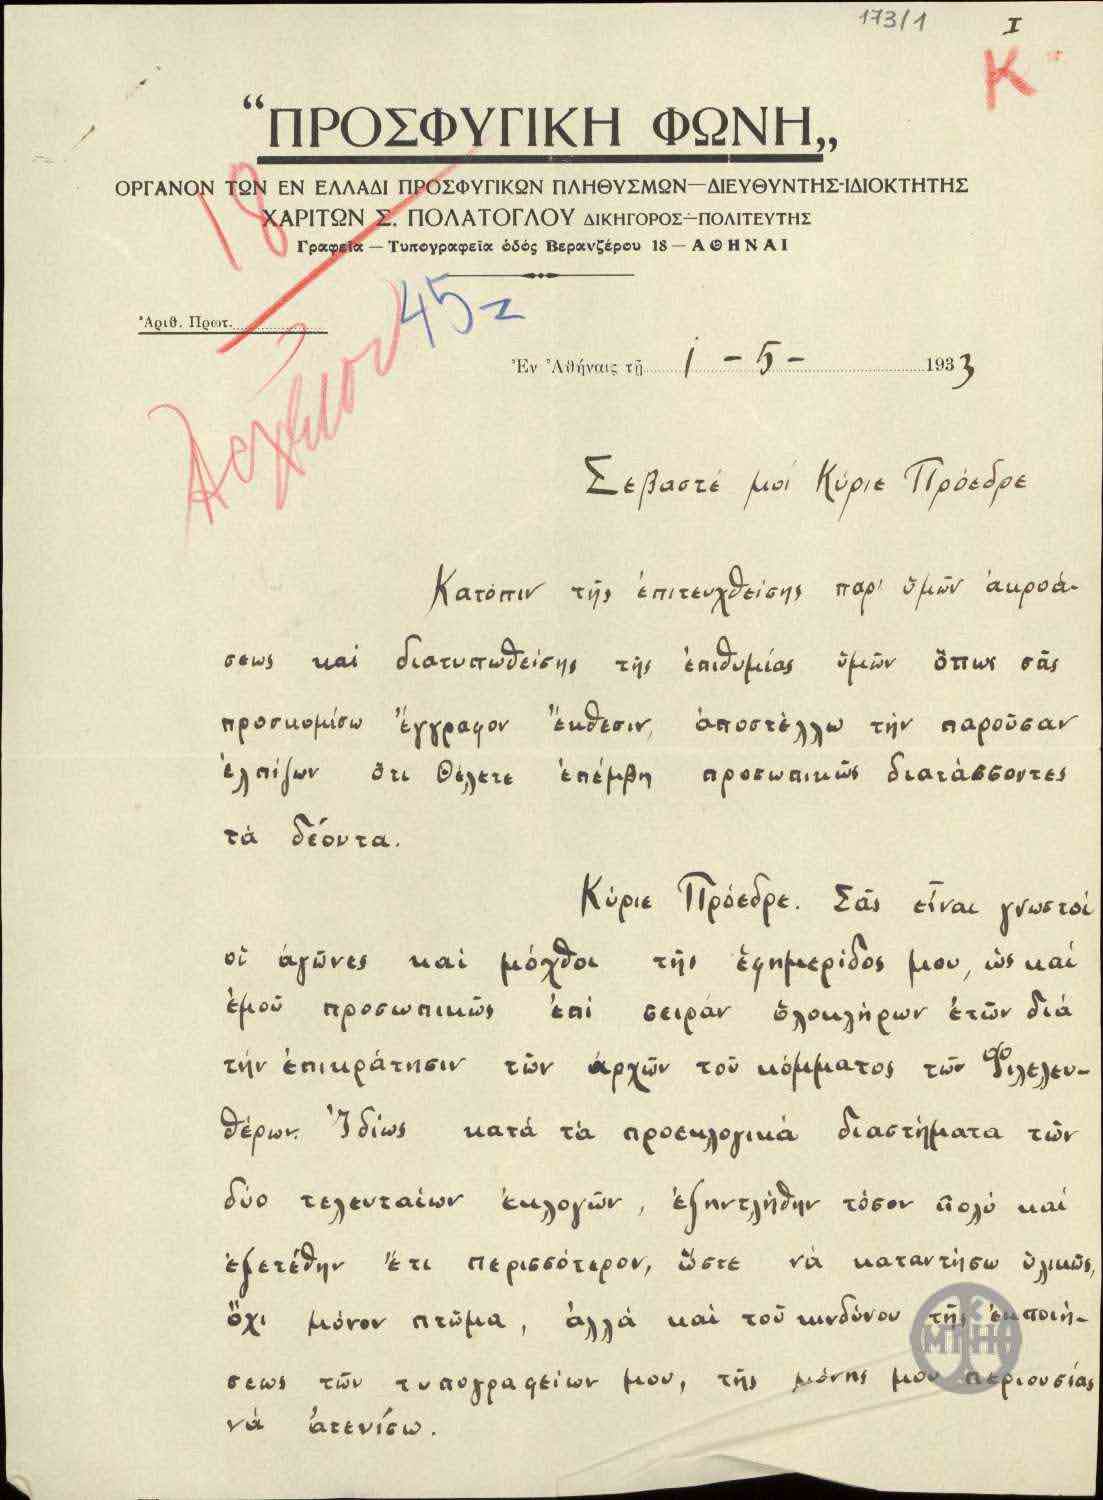 173/1
I
K
“ΠΡΟΣΦΥΓΙΚΗ ΦΩΝΗ„
ΟΡΓΑΝΟΝ ΤΩΝ ΕΝ ΕΛΛΑΔΙ ΠΡΟΣΦΥΓΙΚΩΝ ΠΛΗΘΥΣΜΩΝ—ΔΙΕΥΘΥΝΤΗΣ-ΙΔΙΟΚΤΗΤΗΣ
ΧΑΡΙΤΩΝ Σ. ΠΟΛΑΤΟΓΛΟΥ ΔΙΚΗΓΟΡΟΣ—ΠΟΛΙΤΕΥΤΗΣ
Γραφεῖα — Τυπογραφεῖα ὁδός Βερανζέρου 18 — ΑΘΗΝΑΙ
18
45
Ἀριθ. Πρωτ.
Ἀρχεῖον
Ἐν Ἀθήναις τῇ 1 - 5 - 1933
Σεβαστέ μοί Κύριε Πρόεδρε
Κατόπιν τῆς ἐπιτευχθείσης παρ' ὑμῶν ἀκροά-
σεως καί διατυπωθείσης τῆς ἐπιθυμίας ὑμῶν ὅπως σᾶς
προσκομίσω ἔγγραφον ἔκθεσιν, ἀποστέλλω τήν παροῦσαν
ἐλπίζων ὅτι θέλετε ἐπέμβη προσωπικῶς διατάσσοντες
τά δέοντα.
Κύριε Πρόεδρε. Σᾶς εἶναι γνωστοί
οἱ ἀγῶνες καί μόχθοι τῆς ἐφημερίδος μου, ὡς καί
ἐμοῦ προσωπικῶς ἐπί σειράν ὁλοκλήρων ἐτῶν διά
τήν ἐπικράτησιν τῶν ἀρχῶν τοῦ κόμματος τῶν Φιλελευ-
θέρων. Ἰδίως κατά τά προεκλογικά διαστήματα τῶν
δύο τελευταίων ἐκλογῶν, ἐξηντλήθην τόσον πολύ καί
ἐξετέθην ἔτι περισσότερον, ὥστε νά καταντήσω ὑλικῶς,
ὄχι μόνον πτῶμα, ἀλλά καί τοῦ κινδύνου τῆς ἐκποιή-
σεως τῶν τυπογραφείων μου, τῆς μόνης μου περιουσίας
νά ἀτενίσω.